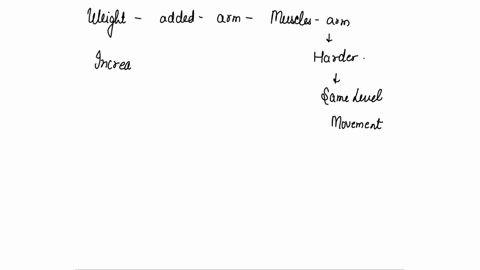 Weight - added - arm - Muscles - arm
↓
Increa Harder.
↓
Same Level
Movement